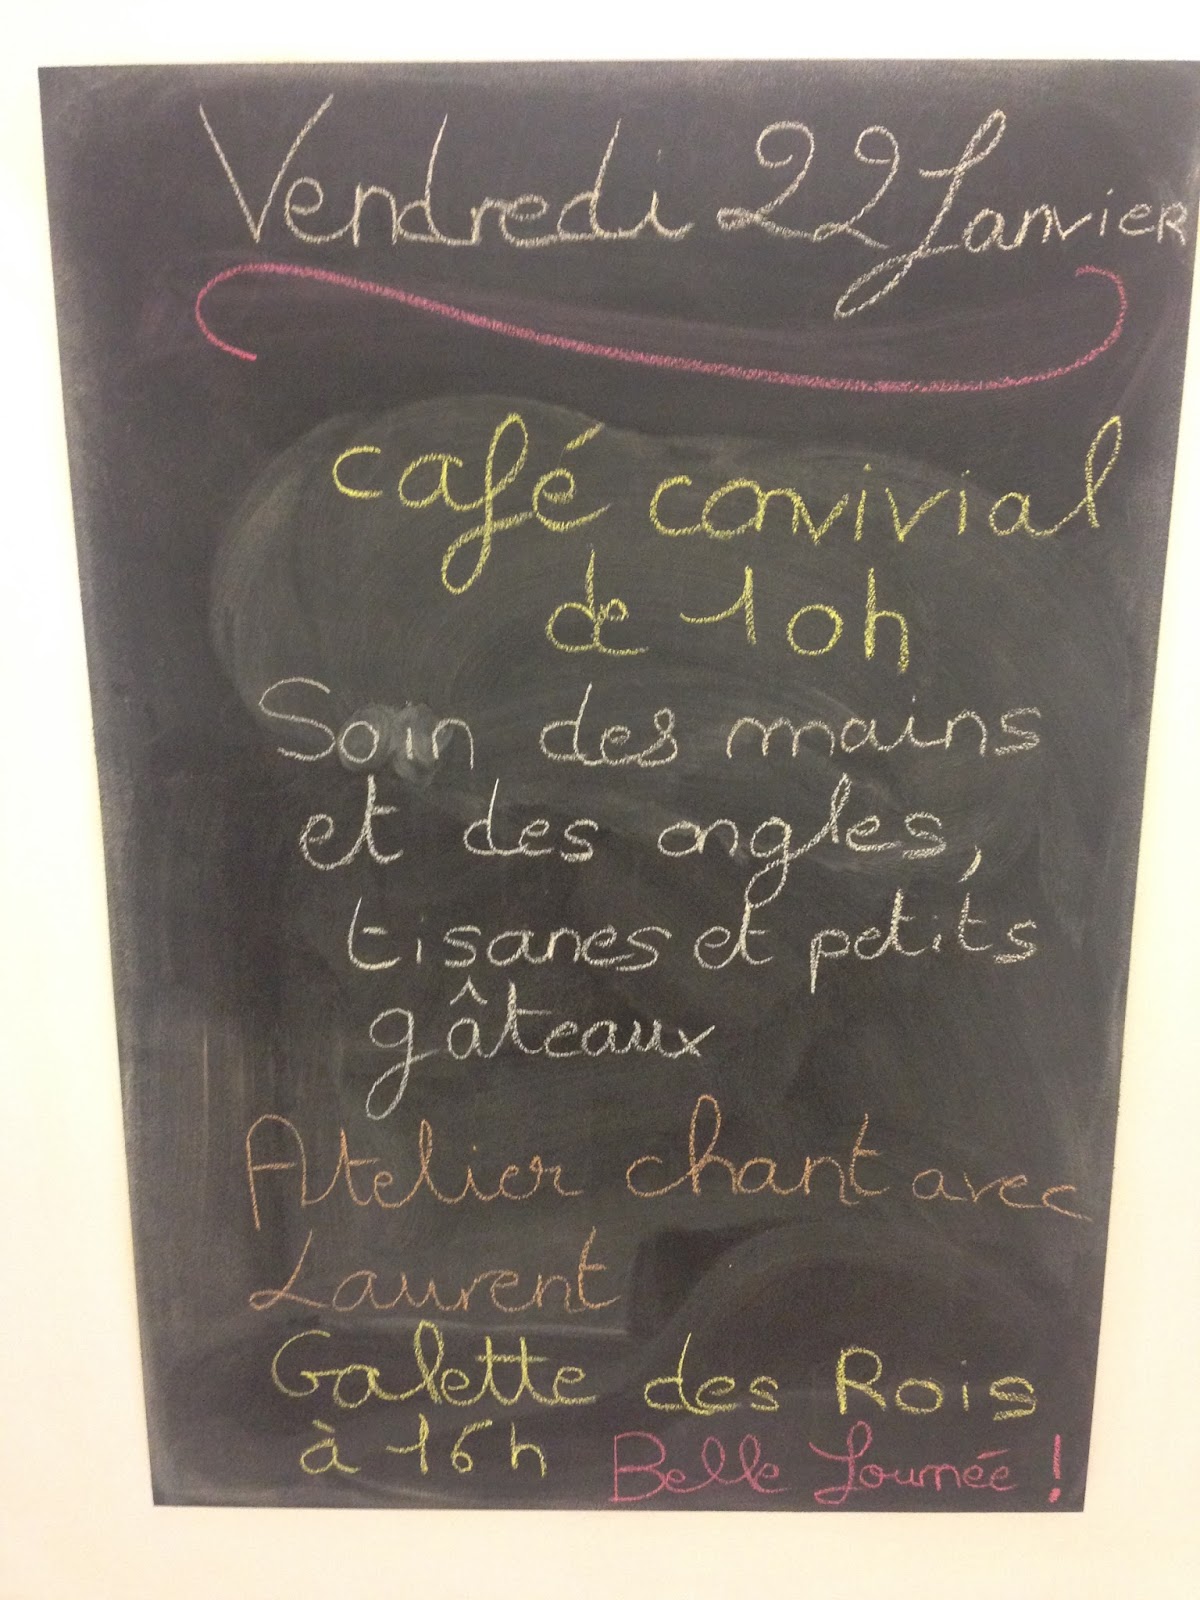 Vendredi 22 Janvier
café convivial
de 10h
Soin des mains
et des ongles,
tisanes et petits
gâteaux
Atelier chant avec
Laurent
Galette des Rois
à 16h Belle Journée !